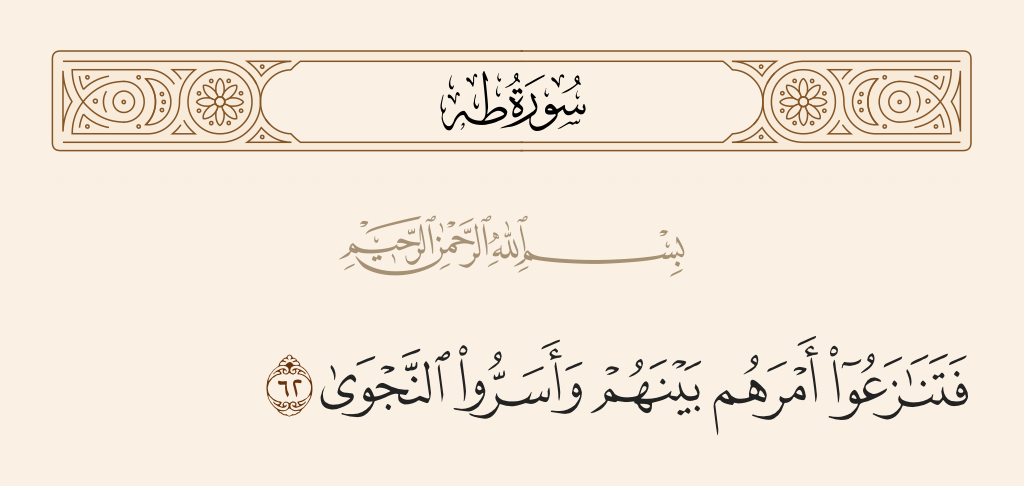 سُورَةُ طه
بِسْمِ ٱللَّهِ ٱلرَّحْمَٰنِ ٱلرَّحِيمِ
فَتَنَٰزَعُوٓا۟ أَمْرَهُم بَيْنَهُمْ وَأَسَرُّوا۟ ٱلنَّجْوَىٰ ٦٢